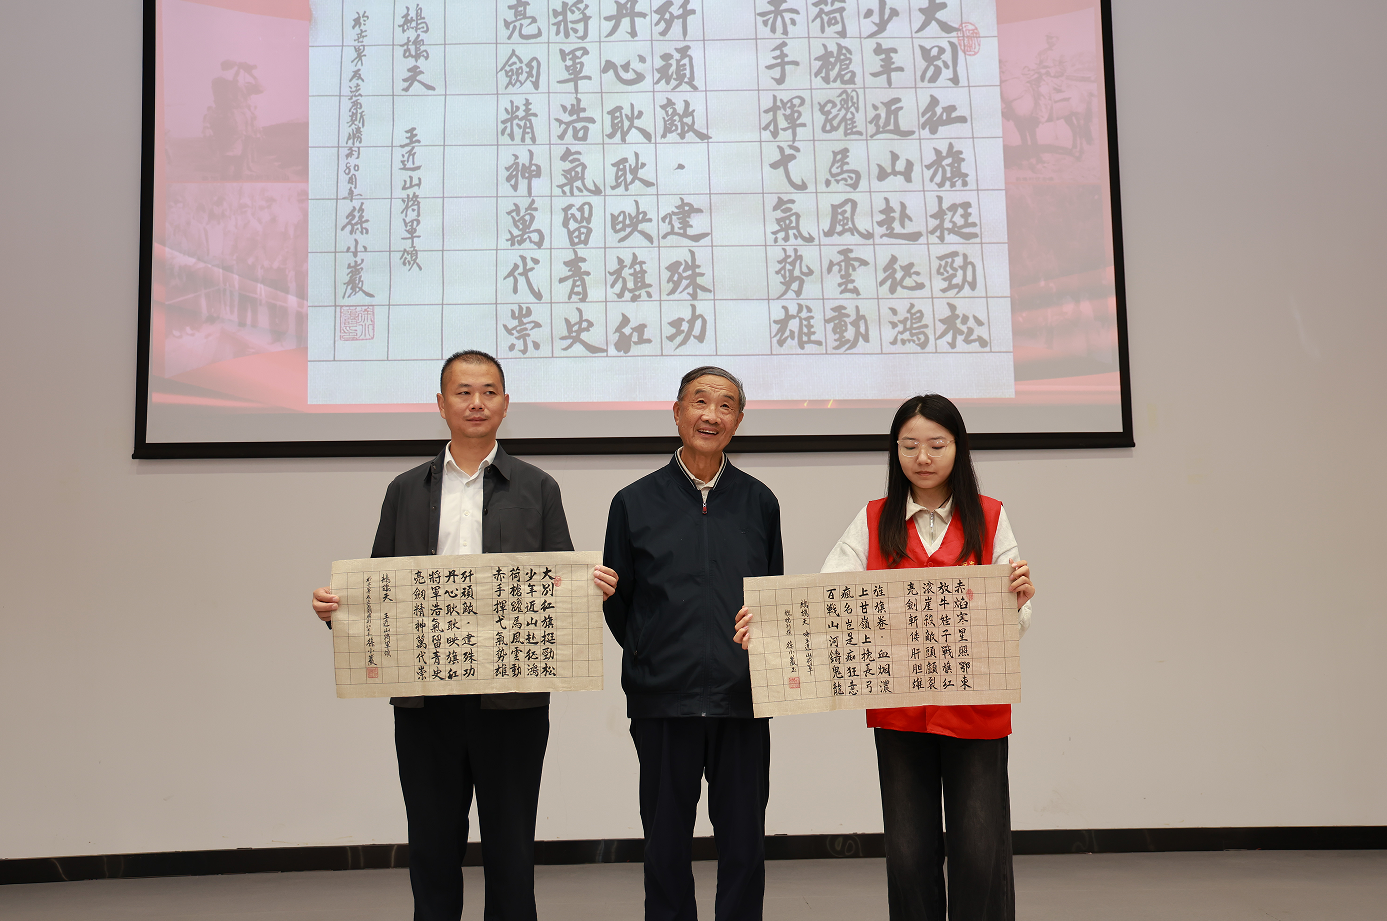 大別红旗挺勁松
少年近山赴征鴻
荷槍躍馬風雲動
赤手揮弋氣势雄
歼頑敵·建殊功
丹心耿耿映旗红
將軍浩氣留青史
亮劍精神萬代崇
鷓鴣天 王近山將軍頌
於世界反法西斯勝利80周年 徐小巖
大別红旗挺勁松
少年近山赴征鴻
荷槍躍馬風雲動
赤手揮弋氣势雄
歼頑敵·建殊功
丹心耿耿映旗红
將軍浩氣留青史
亮劍精神萬代崇
鷓鴣天 王近山將軍頌
徐小巖
赤焰寒星照鄂東
放牛娃子戰旗红
滚崖殺敵頭顱裂
亮剑斬倭肝胆雄
旌旗卷·血烟濃
上甘嶺上挽長弓
瘋名岂是痴狂意
百戰山河鑄鬼龍
鷓鴣天 王近山將軍
徐小巖